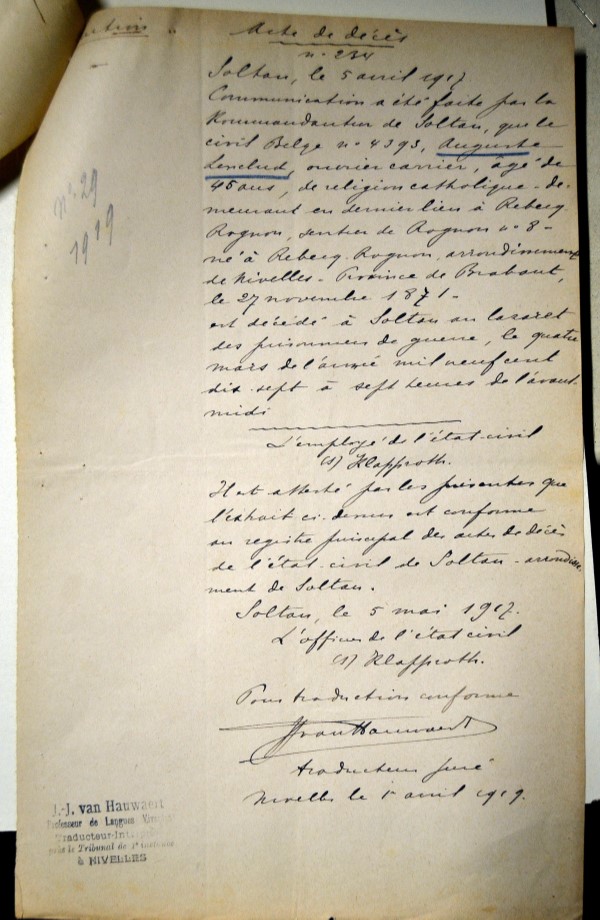 Acte de décès
n° 234
Soltau, le 5 avril 1917
Communication a été faite par la
Kommandantur de Soltau, que le
civil Belge n° 4393, Auguste
Lenclud, ouvrier carrier, âgé de
45 ans, de religion catholique - de-
meurant en dernier lieu à Rebecq-
Rognon, sentier de Rognon n° 8 -
né à Rebecq-Rognon, arrondissement
de Nivelles - Province de Brabant,
le 27 novembre 1871 -
est décédé à Soltau au lazaret
des prisonniers de guerre, le quatre
mars de l'année mil neuf cent
dix-sept à sept heures de l'avant-
midi
L'employé de l'état-civil
(s) Klapproth.
Il est attesté par les présentes que
l'extrait ci-dessus est conforme
au registre principal des actes de décès
de l'état-civil de Soltau - arrondisse-
ment de Soltau.
Soltau, le 5 mai 1917.
L'officier de l'état civil
(s) Klapproth.
Pour traduction conforme
J. van Hauwaert
traducteur juré
Nivelles le 1r avril 1919.
N° 29
1919
J.-J. van Hauwaert
Professeur de Langues
Traducteur-
près le Tribunal de 1e Instance
à NIVELLES